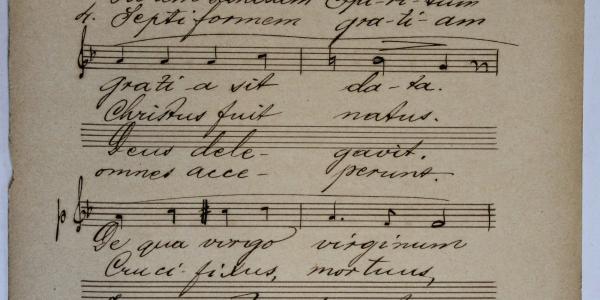 4. Septiformem gra-ti-am
grati-a sit da-ta.
Christus fuit natus.
Deus dele- gavit.
omnes acce- perunt.
p
De qua virgo virginum
Cruci-fixus, mortuus,